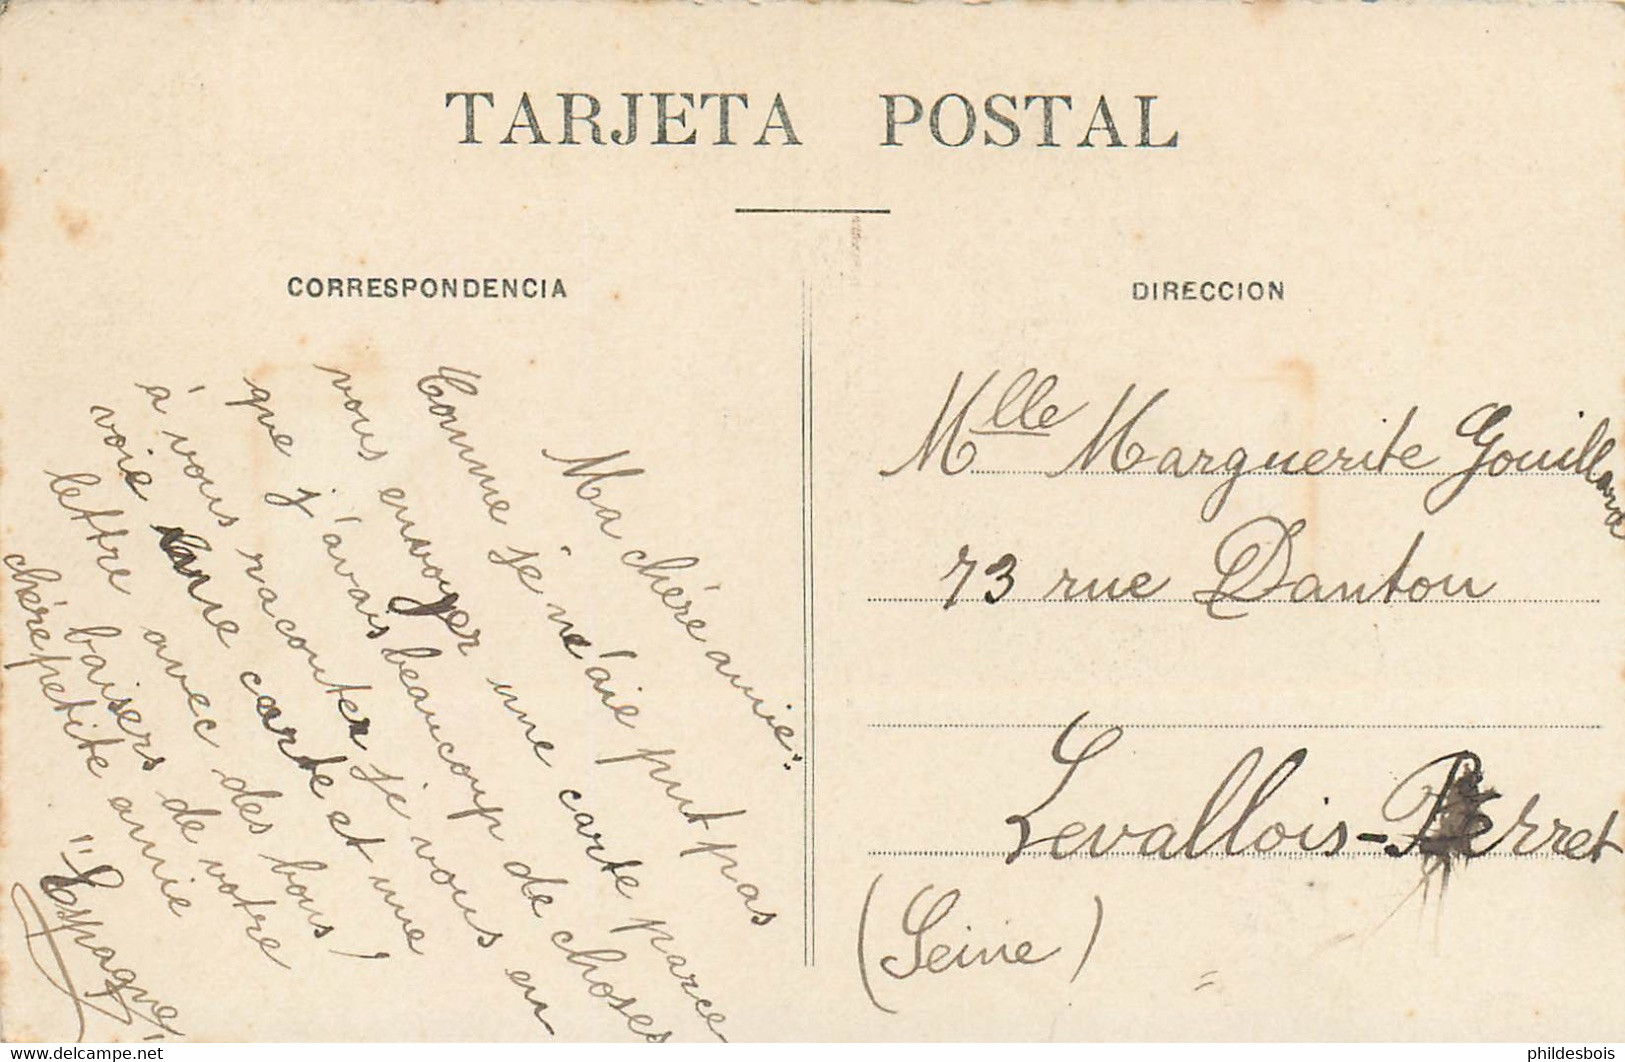 TARJETA POSTAL
CORRESPONDENCIA
Ma chère amie:
Comme je n'aie put pas
vous envoyer une carte parce
que j'avais beaucoup de choses
à vous raconter je vous en
voie une carte et une
lettre avec des bous!
baisers de votre
chère petite amie
"Espagne"
DIRECCION
Mlle Marguerite Gouilland
73 rue Danton
Levallois-Perret
(Seine)
phildesbois